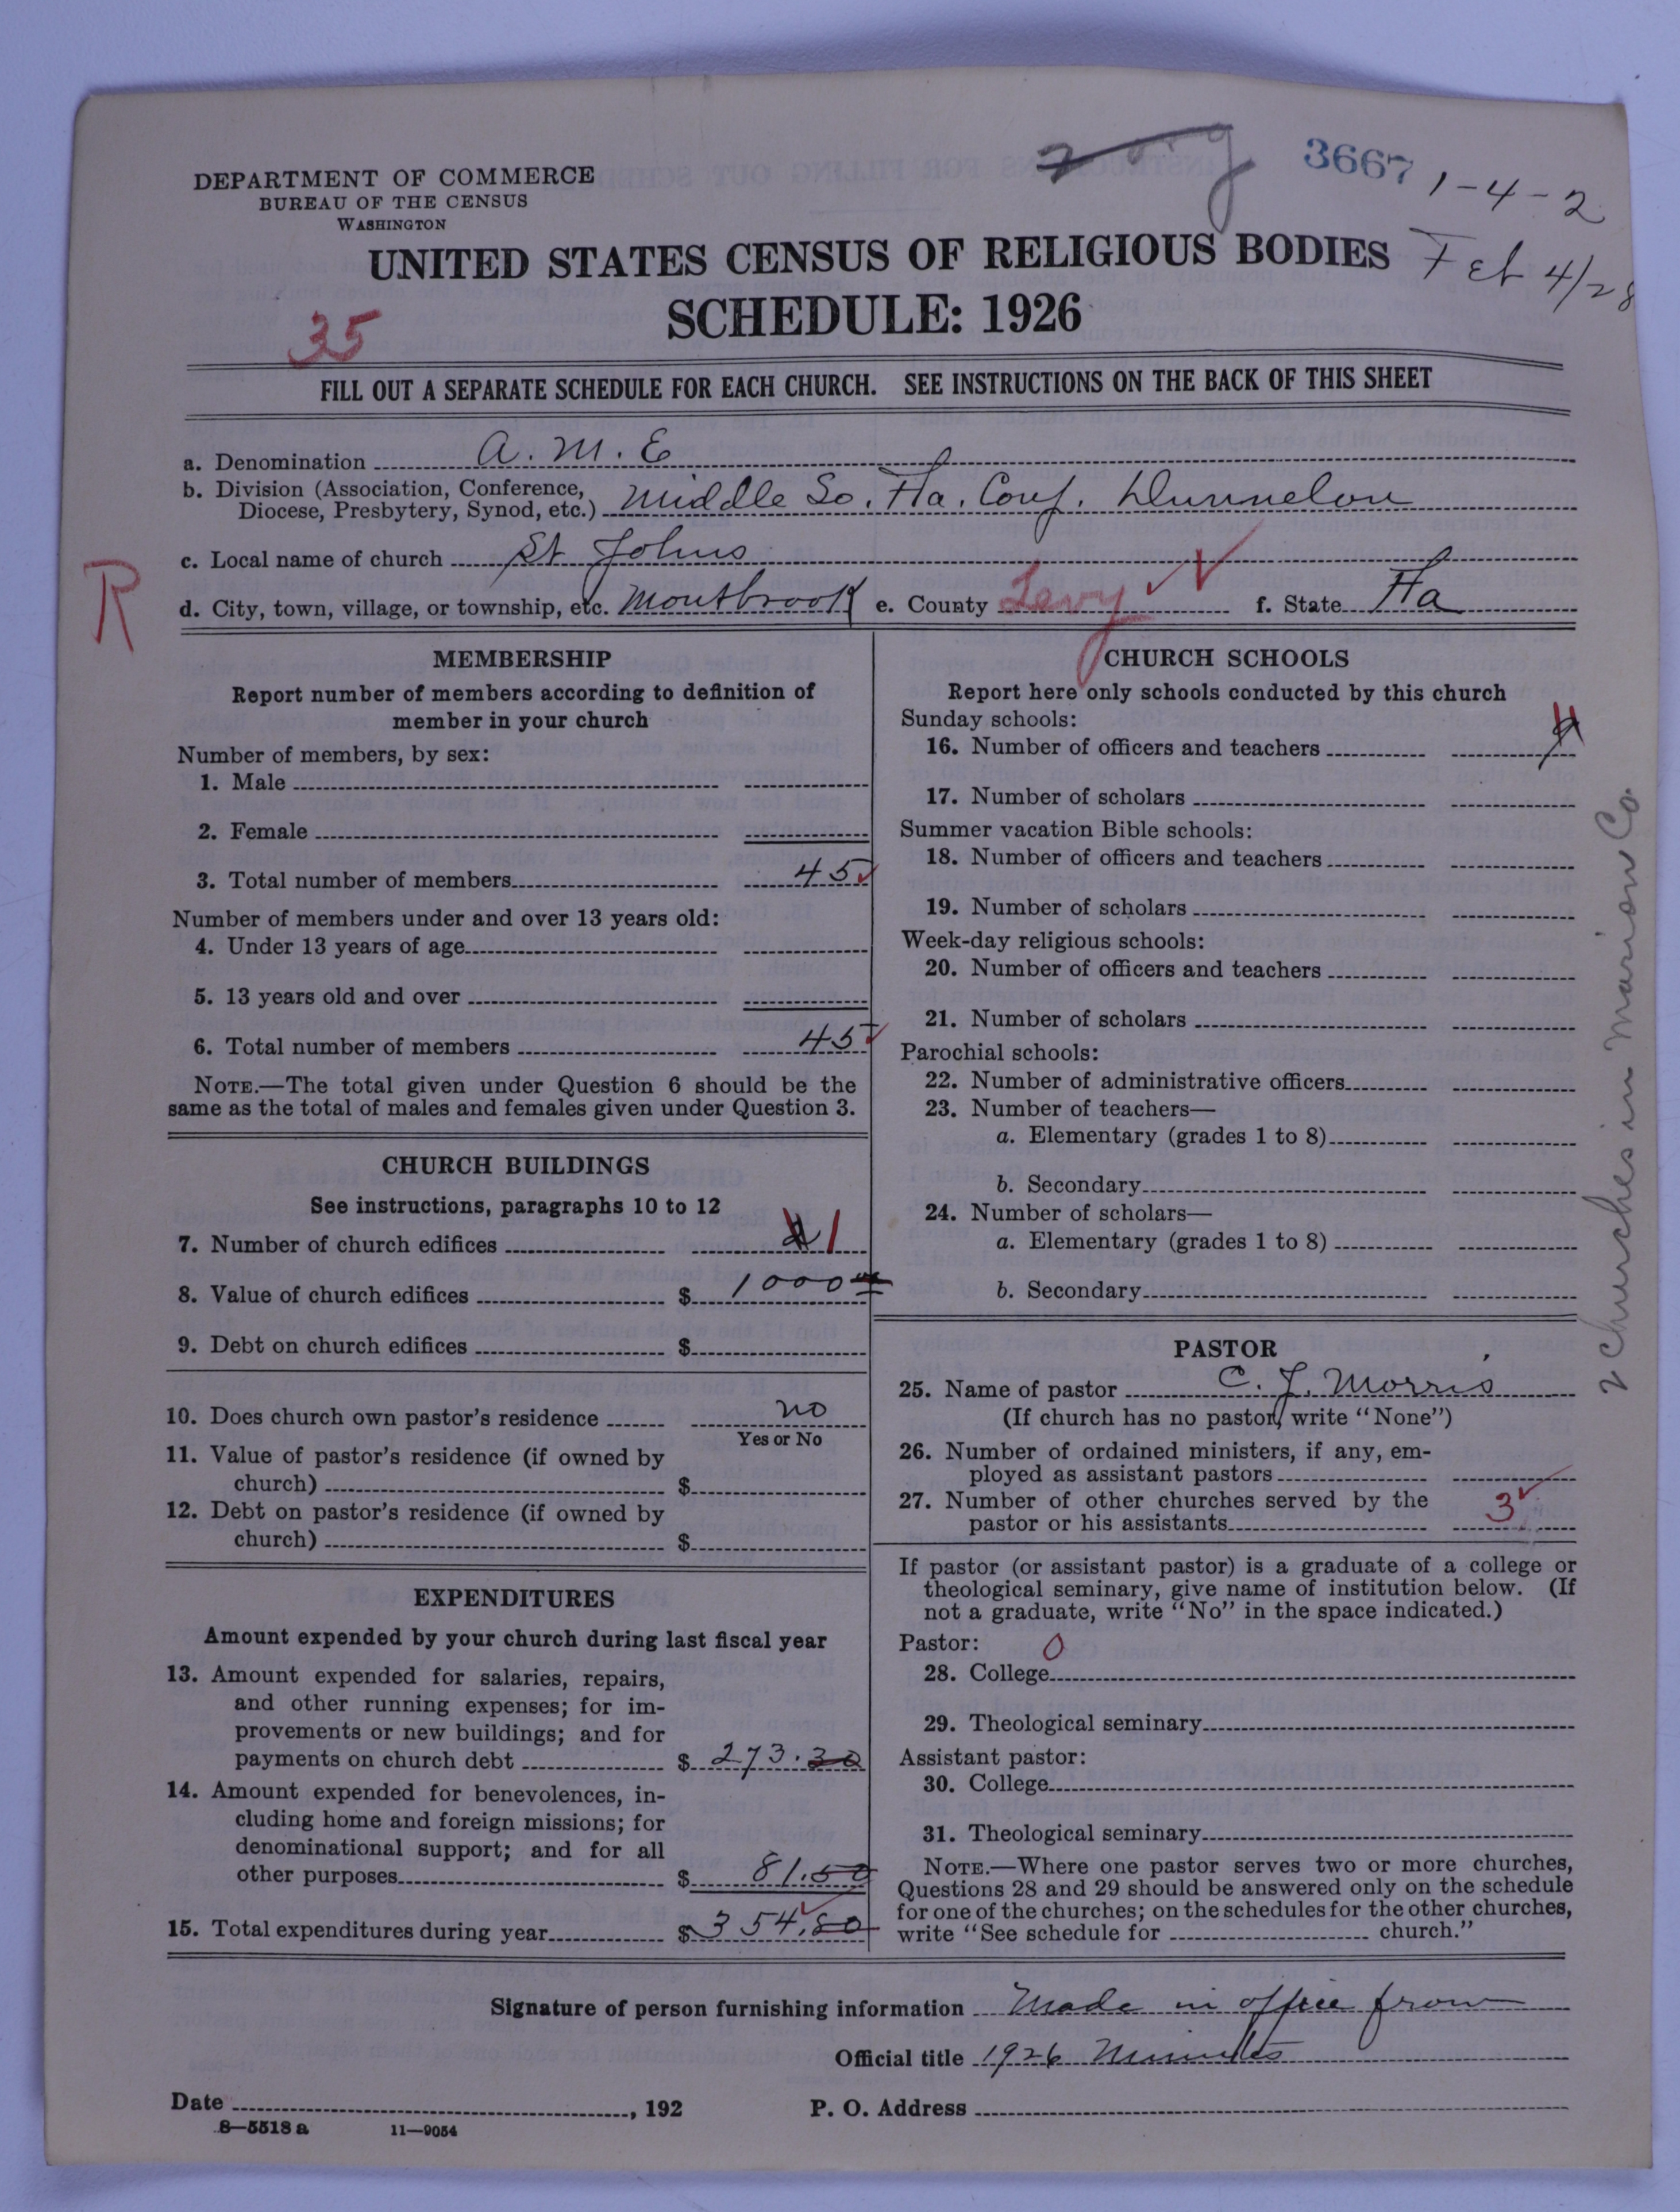 3667 1-4-2
Feb 4/28
DEPARTMENT OF COMMERCE
BUREAU OF THE CENSUS
WASHINGTON
UNITED STATES CENSUS OF RELIGIOUS BODIES
SCHEDULE: 1926
35
FILL OUT A SEPARATE SCHEDULE FOR EACH CHURCH. SEE INSTRUCTIONS ON THE BACK OF THIS SHEET
a. Denomination A. M. E
b. Division (Association, Conference,
Diocese, Presbytery, Synod, etc.) Middle So. Fla. Conf. Dunnelon
c. Local name of church St Johns
R
d. City, town, village, or township, etc. Montbrook e. County Levy f. State Fla
MEMBERSHIP
Report number of members according to definition of
member in your church
Number of members, by sex:
1. Male
2. Female
3. Total number of members 45
Number of members under and over 13 years old:
4. Under 13 years of age
5. 13 years old and over
6. Total number of members 45
NOTE.—The total given under Question 6 should be the
same as the total of males and females given under Question 3.
CHURCH BUILDINGS
See instructions, paragraphs 10 to 12
7. Number of church edifices 1
8. Value of church edifices $ 1000
9. Debt on church edifices $
10. Does church own pastor's residence no
Yes or No
11. Value of pastor's residence (if owned by
church) $
12. Debt on pastor's residence (if owned by
church) $
EXPENDITURES
Amount expended by your church during last fiscal year
13. Amount expended for salaries, repairs,
and other running expenses; for im-
provements or new buildings; and for
payments on church debt $ 273.30
14. Amount expended for benevolences, in-
cluding home and foreign missions; for
denominational support; and for all
other purposes $ 81.50
15. Total expenditures during year $ 354.80
CHURCH SCHOOLS
Report here only schools conducted by this church
Sunday schools:
16. Number of officers and teachers
17. Number of scholars
Summer vacation Bible schools:
18. Number of officers and teachers
19. Number of scholars
Week-day religious schools:
20. Number of officers and teachers
21. Number of scholars
Parochial schools:
22. Number of administrative officers
23. Number of teachers—
a. Elementary (grades 1 to 8)
b. Secondary
24. Number of scholars—
a. Elementary (grades 1 to 8)
b. Secondary
PASTOR
25. Name of pastor C. J. Morris
(If church has no pastor, write "None")
26. Number of ordained ministers, if any, em-
ployed as assistant pastors
27. Number of other churches served by the
pastor or his assistants 3
If pastor (or assistant pastor) is a graduate of a college or
theological seminary, give name of institution below. (If
not a graduate, write "No" in the space indicated.)
Pastor: 0
28. College
29. Theological seminary
Assistant pastor:
30. College
31. Theological seminary
NOTE.—Where one pastor serves two or more churches,
Questions 28 and 29 should be answered only on the schedule
for one of the churches; on the schedules for the other churches,
write "See schedule for church."
2 churches in Marion Co.
Signature of person furnishing information Made in office from
Official title 1926 Minutes
Date , 192 P. O. Address
8—5518 a 11—9054